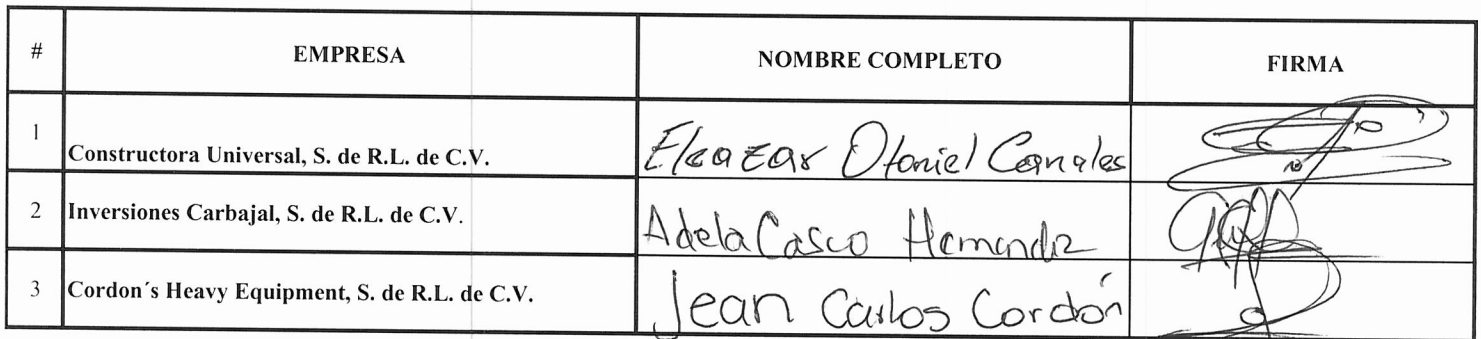 # EMPRESA NOMBRE COMPLETO FIRMA
1 Constructora Universal, S. de R.L. de C.V. Eleazar Otoniel Canales
2 Inversiones Carbajal, S. de R.L. de C.V. Adela Casco Hernandz
3 Cordon´s Heavy Equipment, S. de R.L. de C.V. Jean Carlos Cordón